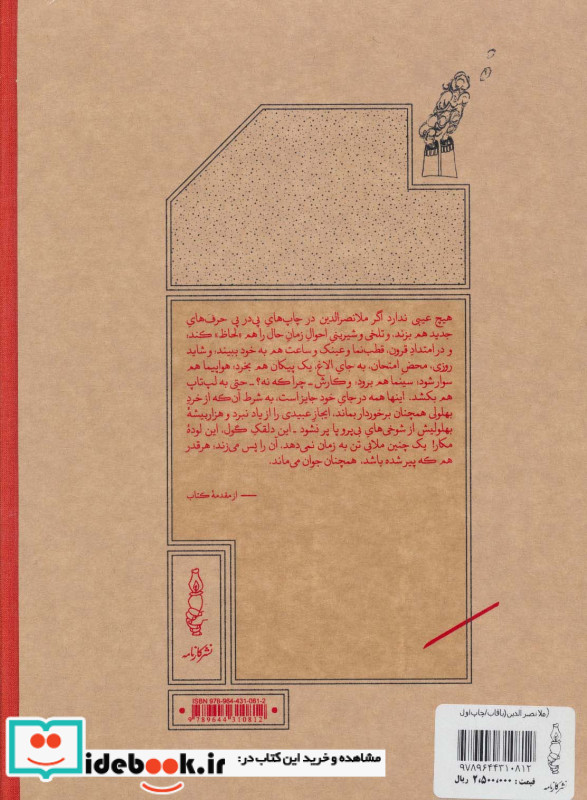 هیچ عیبی ندارد اگر ملانصرالدین در چاپ‌های پی‌درپی حرف‌های
جدید هم بزند. و تلخی و شیرینیِ احوالِ زمانِ حال را هم «لحاظ» کند،
و در امتدادِ قرون، قطب‌نما و عینک و ساعت هم به خود ببیند، و شاید
روزی، محضِ امتحان، به جای الاغ، یک پیکان هم بخرد، هواپیما هم
سوار شود، سینما هم برود، و کارش ـ چرا که نه؟ ـ حتی به لپ‌تاپ
هم بکشد. اینها همه در جای خود جایز است، به شرط آن که از خردِ
بهلولی همچنان برخوردار بماند، ایجازِ عبیدی را از یاد نبرد و هزاربیشهٔ
بهلولیش از شوخی‌های بی‌پر و پا پر نشود ـ این دلقکِ گول، این لودهٔ
مکار! یک چنین ملایی تن به زمان نمی‌دهد، آن را پس می‌زند، هرقدر
هم که پیر شده باشد، همچنان جوان می‌ماند.
— از مقدمهٔ کتاب
نشر کارنامه
ISBN 978-964-431-081-2
9 789644 310812
(ملا نصرالدین (باقاب/چاپ اول
۹۷۸۹۶۴۴۳۱۰۸۱۲
قیمت: ۲,۵۰۰,۰۰۰ ریال
نشر کارنامه
idebook.ir
مشاهده و خرید این کتاب در: